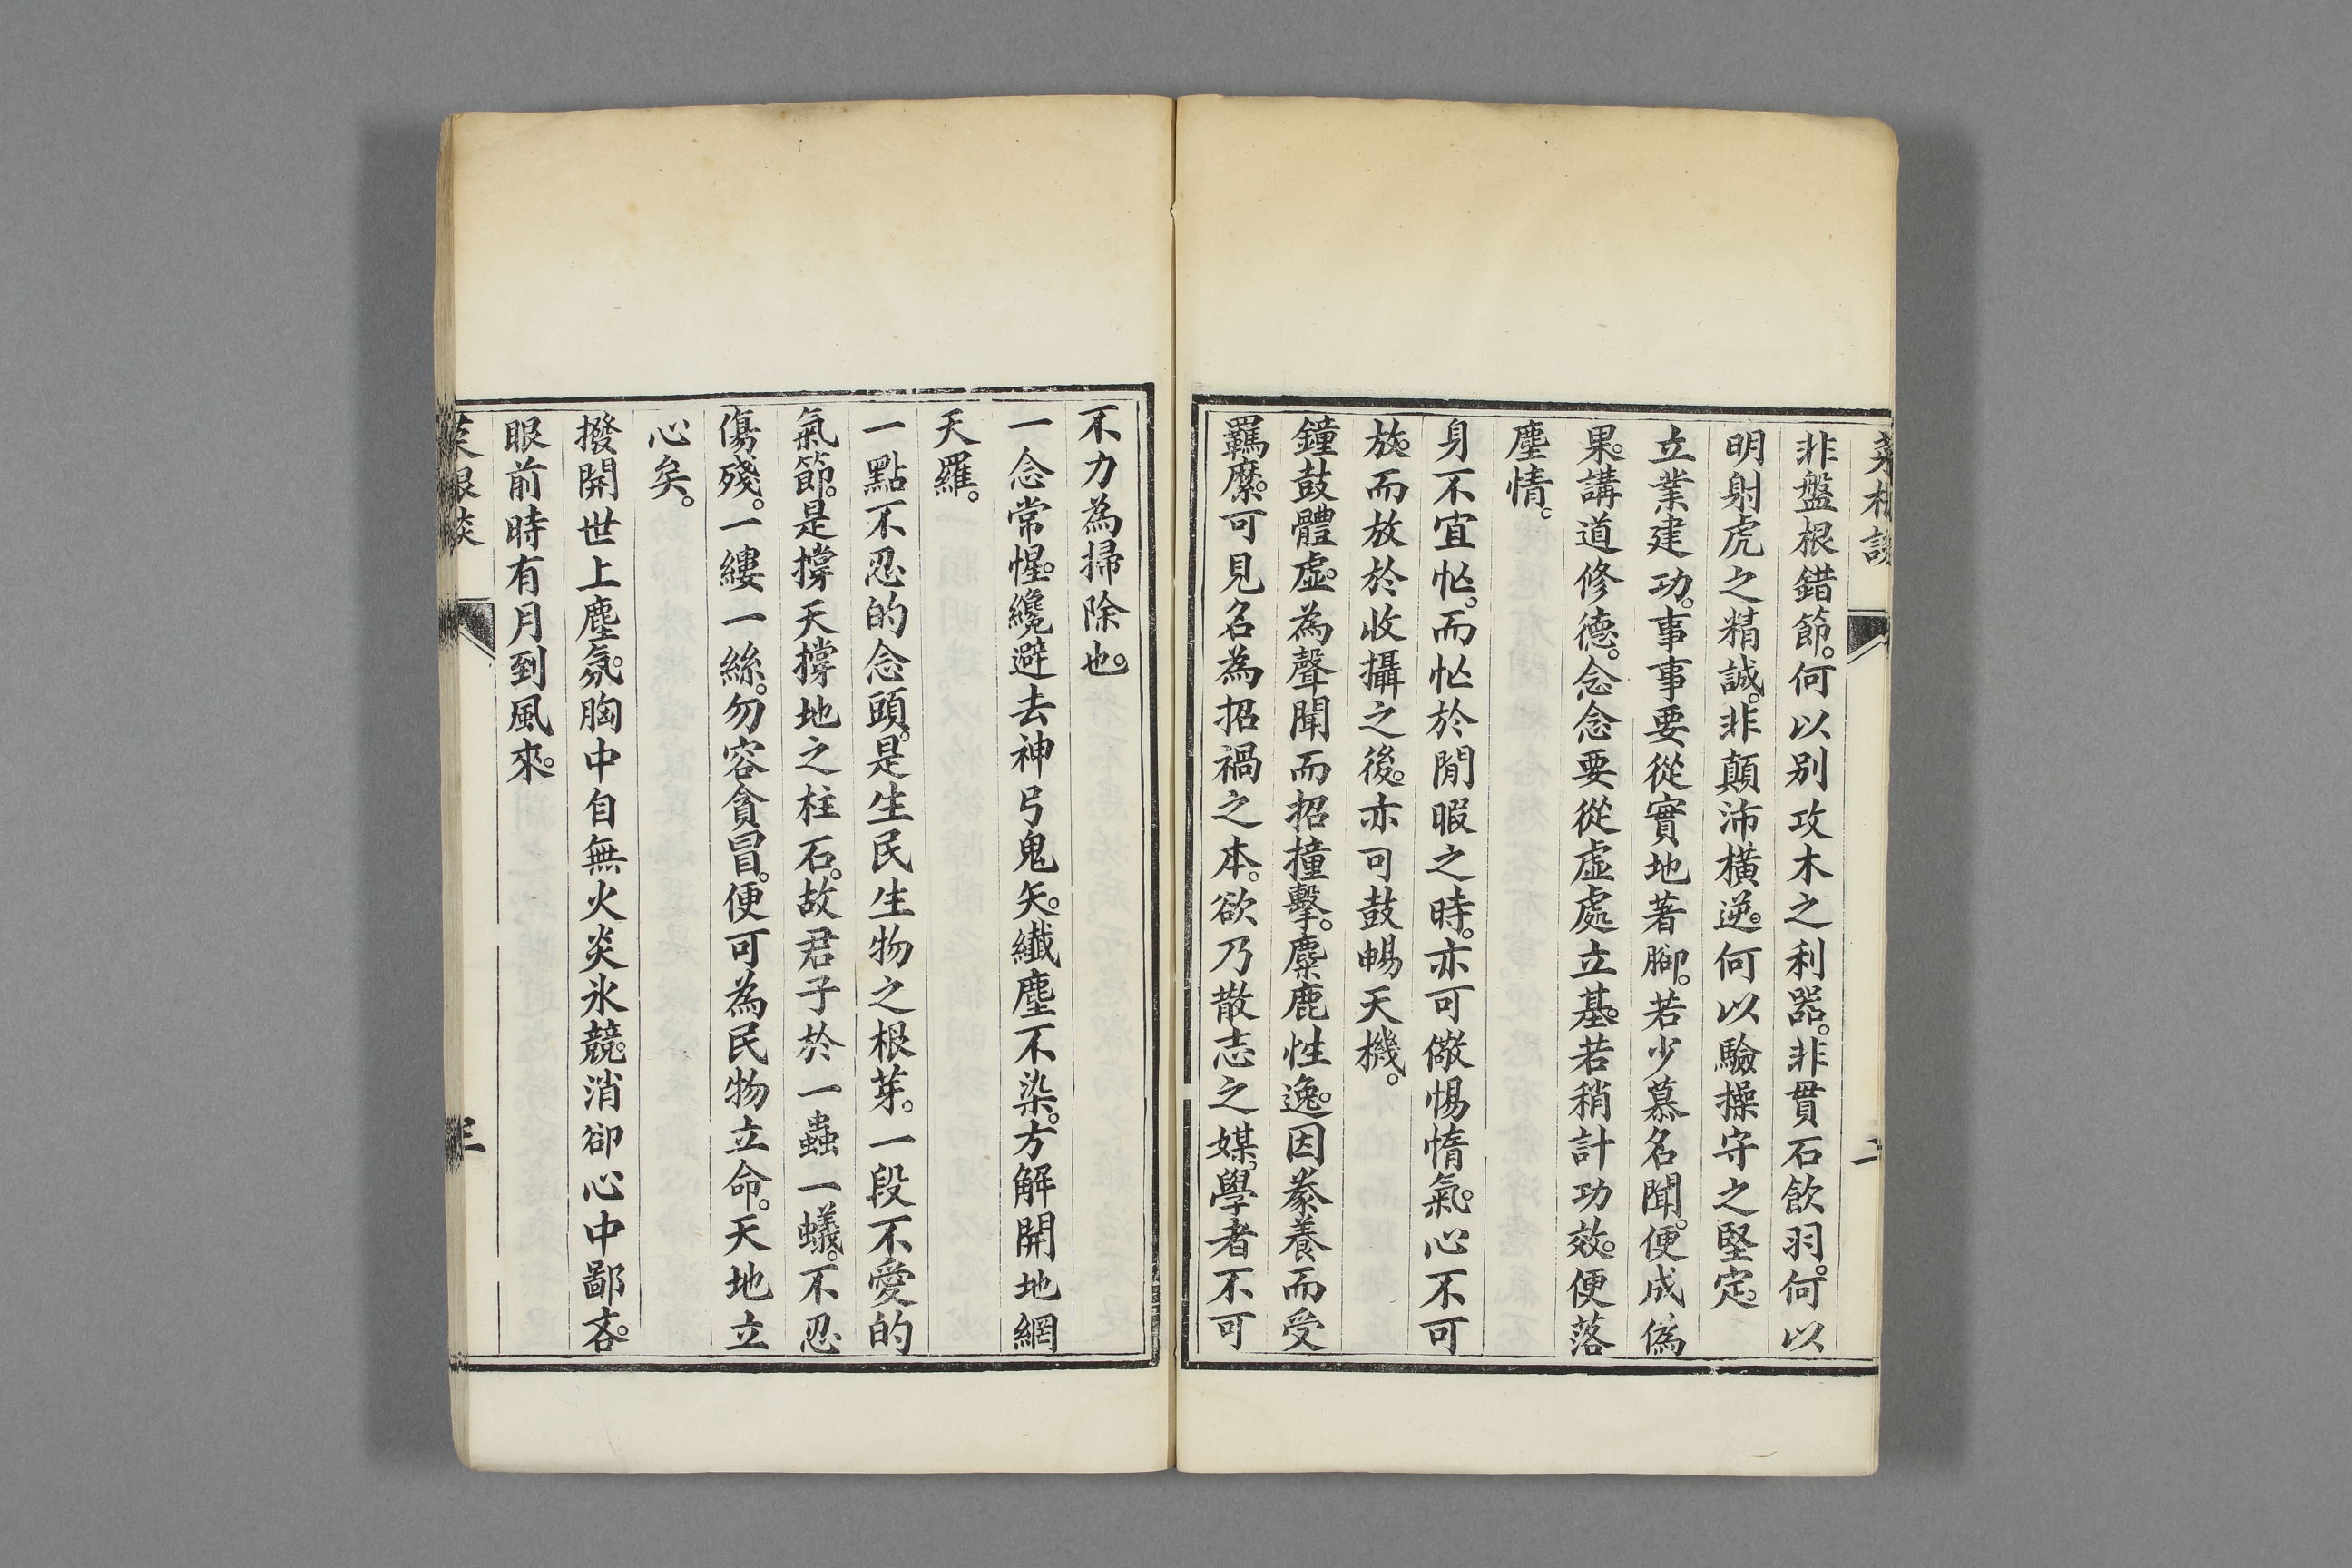 菜根談
二
非盤根錯節。何以別攻木之利器。非貫石飲羽。何以
明射虎之精誠。非顛沛橫逆。何以驗操守之堅定。
立業建功。事事要從實地著腳。若少慕名聞。便成僞
果。講道修德。念念要從虛處立基。若稍計功效。便落
塵情。
身不宜忙。而忙於閒暇之時。亦可儆惕惰氣。心不可
放。而放於收攝之後。亦可鼓暢天機。
鐘鼓體虛。為聲聞而招撞擊。麋鹿性逸。因豢養而受
羈縻。可見名為招禍之本。欲乃散志之媒。學者不可
不力為掃除也。
一念常惺。纔避去神弓鬼矢。纖塵不染。方解開地網
天羅。
一點不忍的念頭。是生民生物之根芽。一段不愛的
氣節。是撐天撐地之柱石。故君子於一蟲一蟻。不忍
傷殘。一縷一絲。勿容貪冒。便可為民物立命。天地立
心矣。
撥開世上塵氛。胸中自無火炎氷競。消卻心中鄙吝。
眼前時有月到風來。
菜根談
三